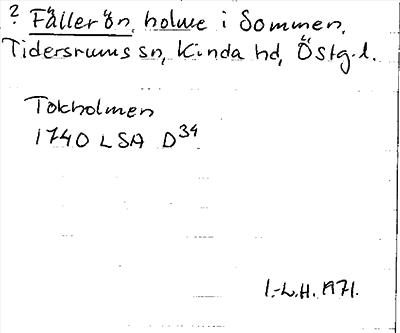 ? Fålleråön, holme i Sommen,
Tidersrums sn, Kinda hd, Östg.l.
Tokholmen
1740 LSA D34
I.-L.H. 1971.